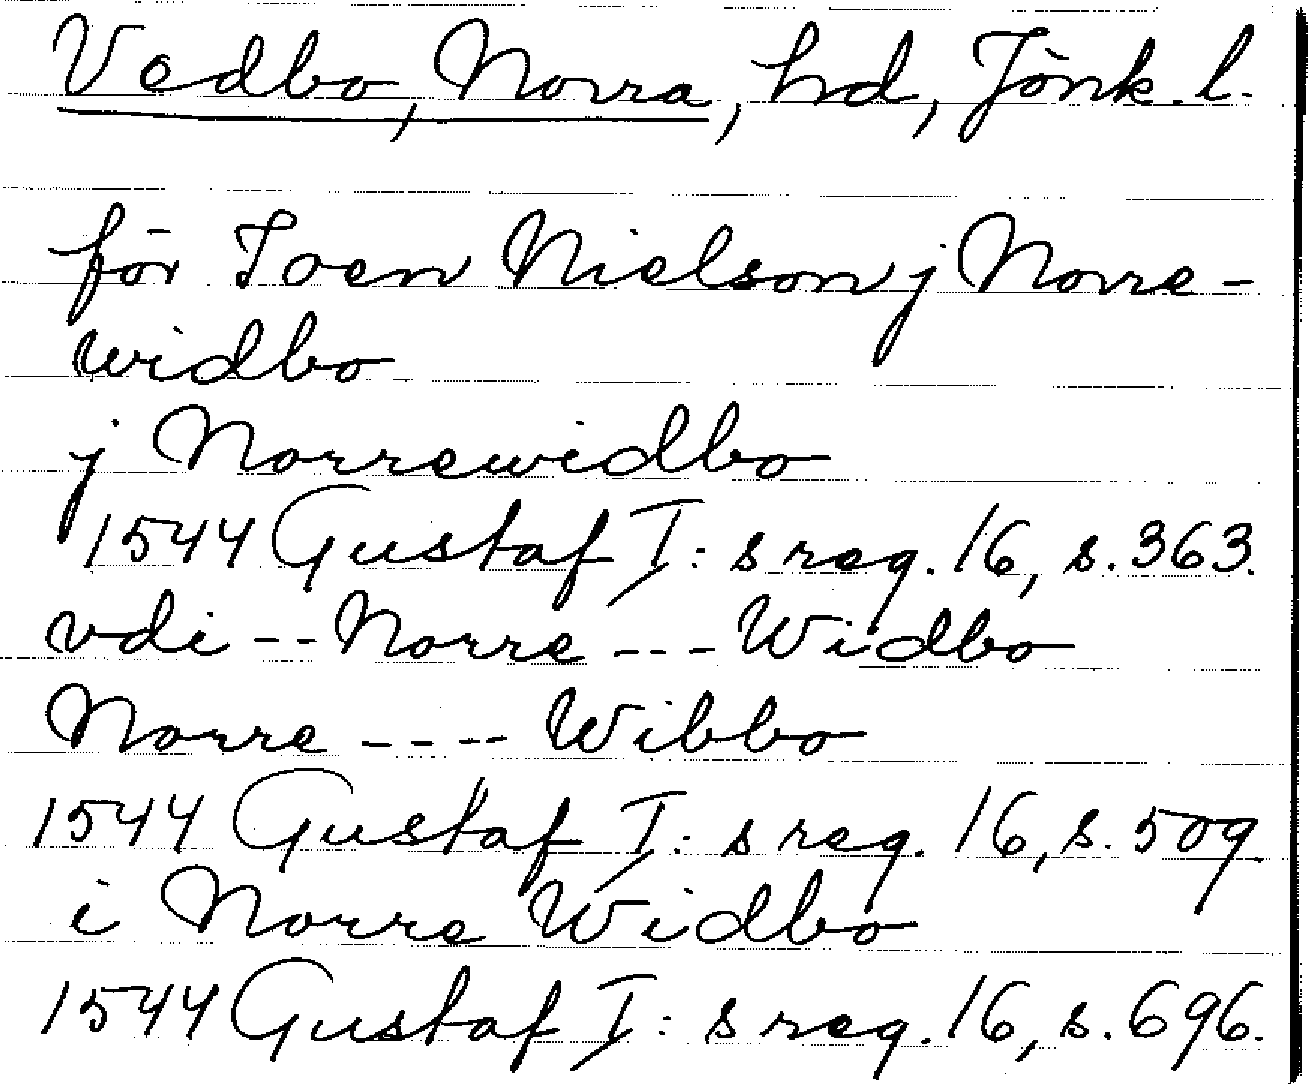 Vedbo, Norra, hd, Jönk. l.
för Joen Nielson j Norre-
widbo
j Norrewidbo
1544 Gustaf I:s reg. 16, s. 363.
vdi -- Norre --- Widbo
Norre ---- Wibbo
1544 Gustaf I:s reg. 16, s. 509.
i Norre Widbo
1544 Gustaf I:s reg. 16, s. 696.